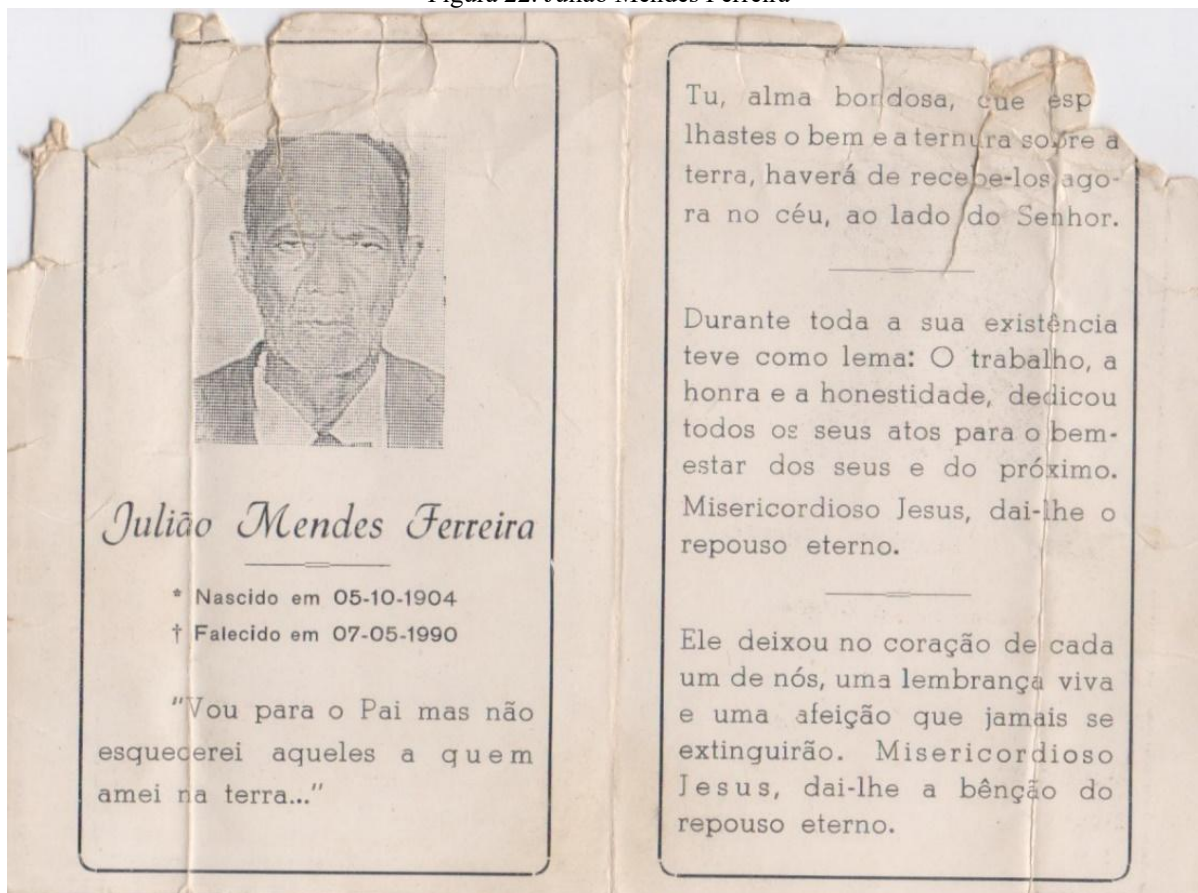 Figura 22: Julião Mendes Ferreira
Julião Mendes Ferreira
* Nascido em 05-10-1904
† Falecido em 07-05-1990
"Vou para o Pai mas não
esquecerei aqueles a quem
amei na terra..."
Tu, alma bondosa, que esp
lhastes o bem e a ternura sobre a
terra, haverá de recebe-los ago-
ra no céu, ao lado do Senhor.
Durante toda a sua existência
teve como lema: O trabalho, a
honra e a honestidade, dedicou
todos os seus atos para o bem-
estar dos seus e do próximo.
Misericordioso Jesus, dai-lhe o
repouso eterno.
Ele deixou no coração de cada
um de nós, uma lembrança viva
e uma afeição que jamais se
extinguirão. Misericordioso
Jesus, dai-lhe a bênção do
repouso eterno.